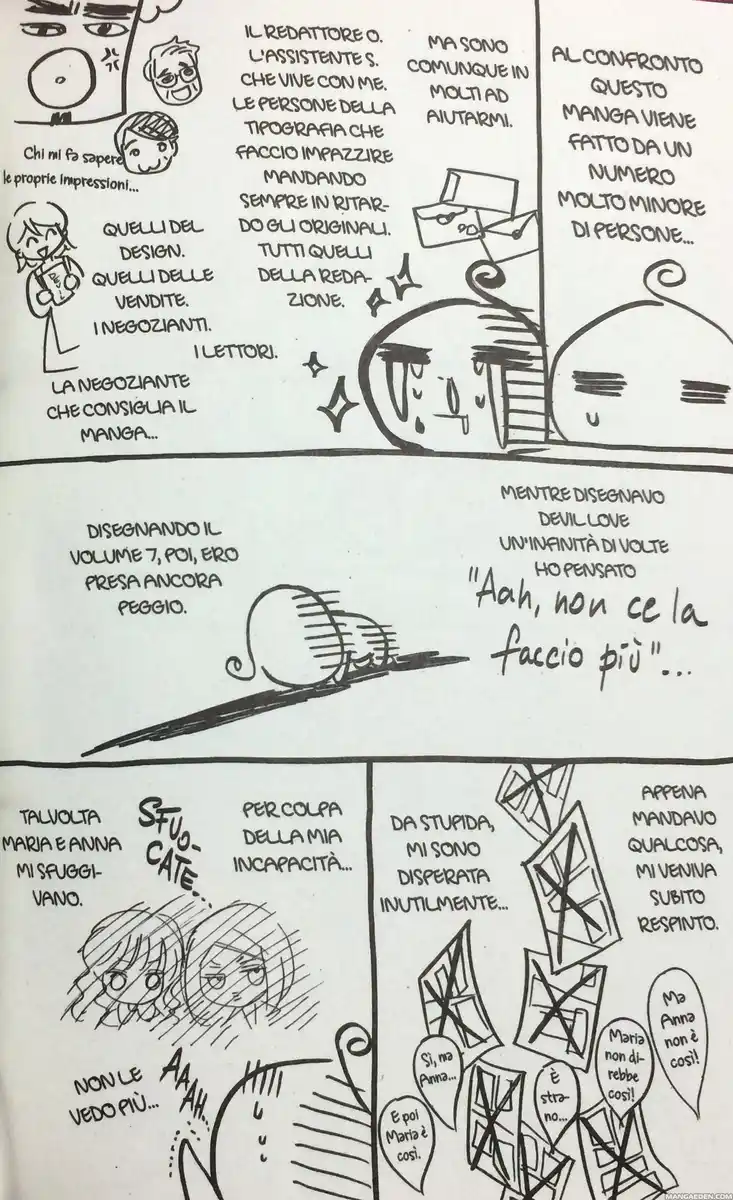 AL CONFRONTO
QUESTO
MANGA VIENE
FATTO DA UN
NUMERO
MOLTO MINORE
DI PERSONE...
MA SONO
COMUNQUE IN
MOLTI AD
AIUTARMI.
IL REDATTORE O.
L'ASSISTENTE S.
CHE VIVE CON ME.
LE PERSONE DELLA
TIPOGRAFIA CHE
FACCIO IMPAZZIRE
MANDANDO
SEMPRE IN RITAR-
DO GLI ORIGINALI.
TUTTI QUELLI
DELLA REDA-
ZIONE.
Chi mi fa sapere
le proprie impressioni...
QUELLI DEL
DESIGN.
QUELLI DELLE
VENDITE.
I NEGOZIANTI.
I LETTORI.
LA NEGOZIANTE
CHE CONSIGLIA IL
MANGA...
MENTRE DISEGNAVO
DEVIL LOVE
UN'INFINITÀ DI VOLTE
HO PENSATO
"Aah, non ce la
faccio più"...
DISEGNANDO IL
VOLUME 7, POI, ERO
PRESA ANCORA
PEGGIO.
APPENA
MANDAVO
QUALCOSA,
MI VENIVA
SUBITO
RESPINTO.
Ma
Anna
non è
così!
Maria
non di-
rebbe
così!
È
stra-
no...
Sì, ma
Anna...
E poi
Maria è
così.
DA STUPIDA,
MI SONO
DISPERATA
INUTILMENTE...
PER COLPA
DELLA MIA
INCAPACITÀ...
SFUO-
CATE...
TALVOLTA
MARIA E ANNA
MI SFUGGI-
VANO.
AA
AH...
NON LE
VEDO PIÙ...
MANGAEDEN.COM